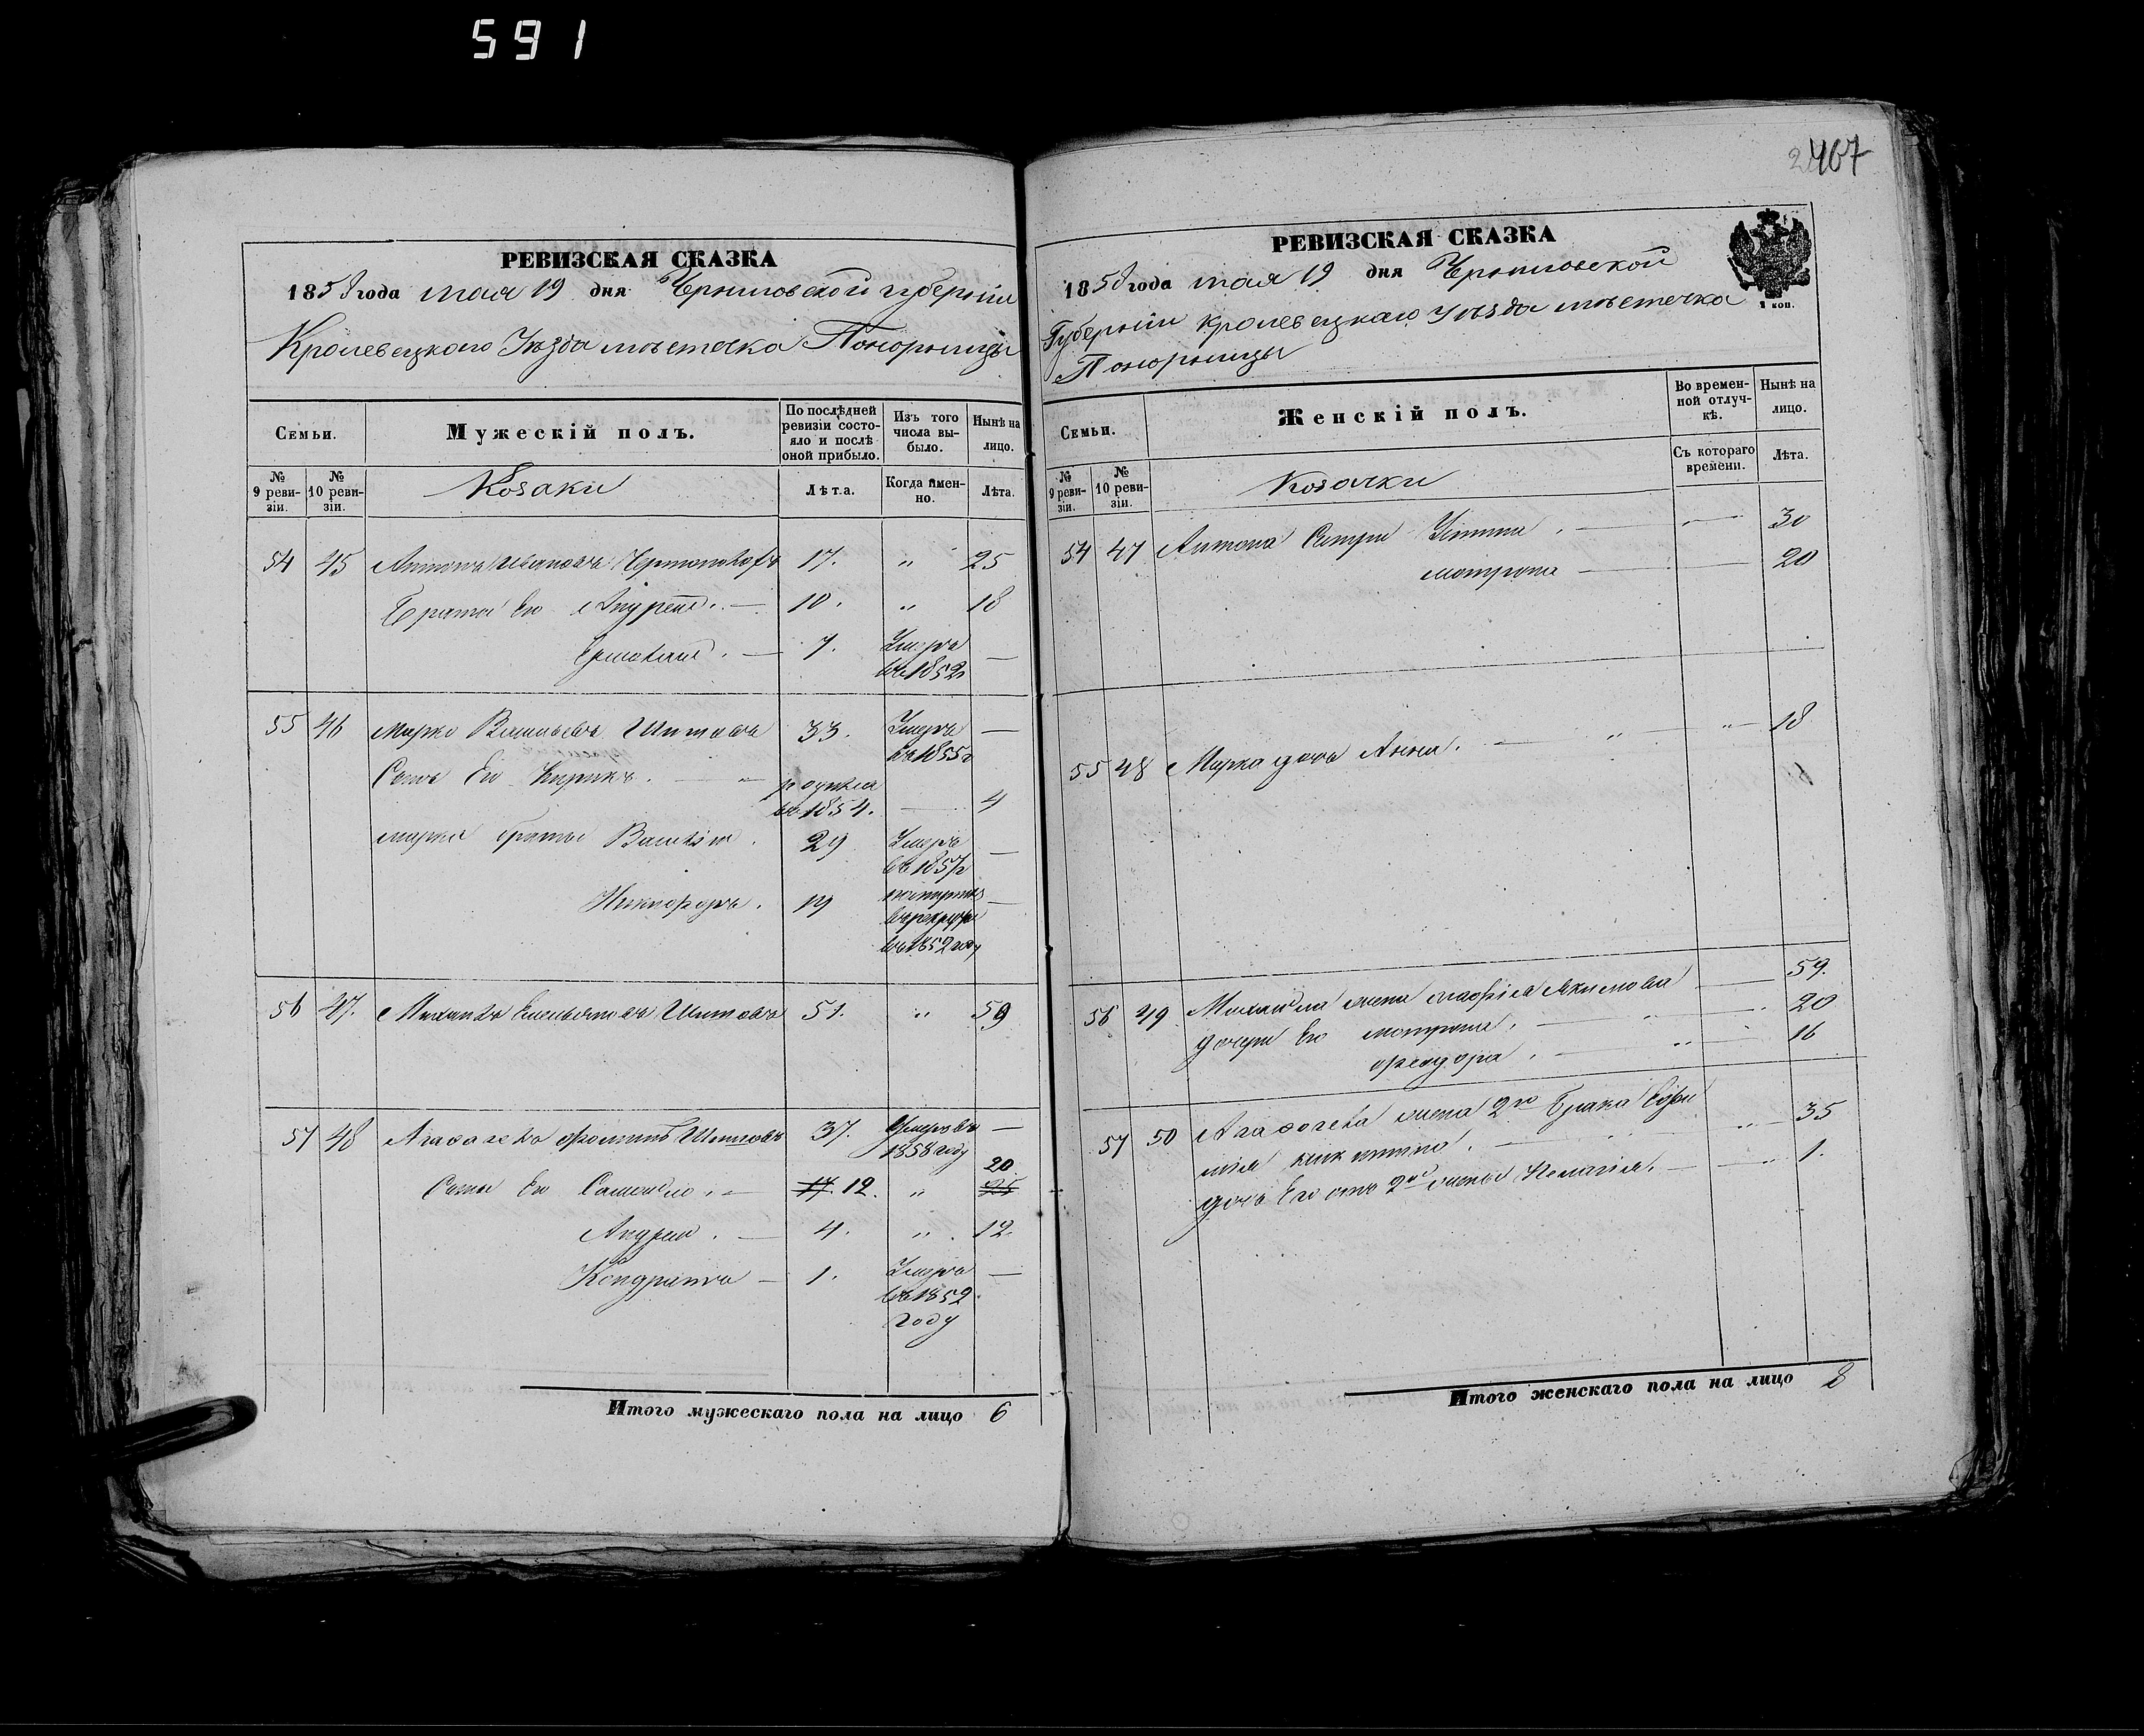 591
РЕВИЗСКАЯ СКАЗКА
1858 года мая 19 дня Черниговской губерніи
Кролевецкаго Уѣзда мѣстечка Понорницы
Семьи.
Мужескій полъ.
По послѣдней ревизіи состояло и послѣ оной прибыло.
Изъ того числа выбыло.
Нынѣ на лицо.
№ 9 ревизіи.
№ 10 ревизіи.
Козаки
Лѣта.
Когда именно.
Лѣта.
54 45 Антонъ Ивановъ 17. " 25
Братья Его 10. " 18
7. Умеръ въ 1852 —
55 46 Марко Васильевъ Шитовъ 33. Умеръ въ 1855г —
Сынъ Его Кирикъ. родился въ 1854. — 4
Марка братья Василій. 29 Умеръ въ 1857г —
Никифоръ. 19 въ рекруты въ 1852 году —
56 47. Михаилъ Емельяновъ Шитовъ 51. " 59
57 48 Фоминъ Шитовъ 37. Умеръ въ 1858 году —
Сыны Его Самойло. 17. 12. " 20 25
Андрей. 4. " 12.
Кондратъ — 1. Умеръ въ 1852 году —
Итого мужескаго пола на лицо 6
2407
РЕВИЗСКАЯ СКАЗКА
1858 года мая 19 дня Черниговской
Губерніи Кролевецкаго Уѣзда мѣстечка
Понорницы
1 коп.
Семьи.
Женскій полъ.
Во временной отлучкѣ.
Нынѣ на лицо.
№ 9 ревизіи.
№ 10 ревизіи.
Козачки
Съ котораго времени.
Лѣта.
54 47 Антона Сестры — 30
Мотрона — 20
55 48 Марка дочь Анна. — " — 18
56 49 Михаила жена Якимова — 59.
дочери Его Мотрона. — 20
Феодора. — 16
57 50 жена 2го Брака
35
дочь Его отъ 2й жены Пелагія. — 1.
Итого женскаго пола на лицо 8